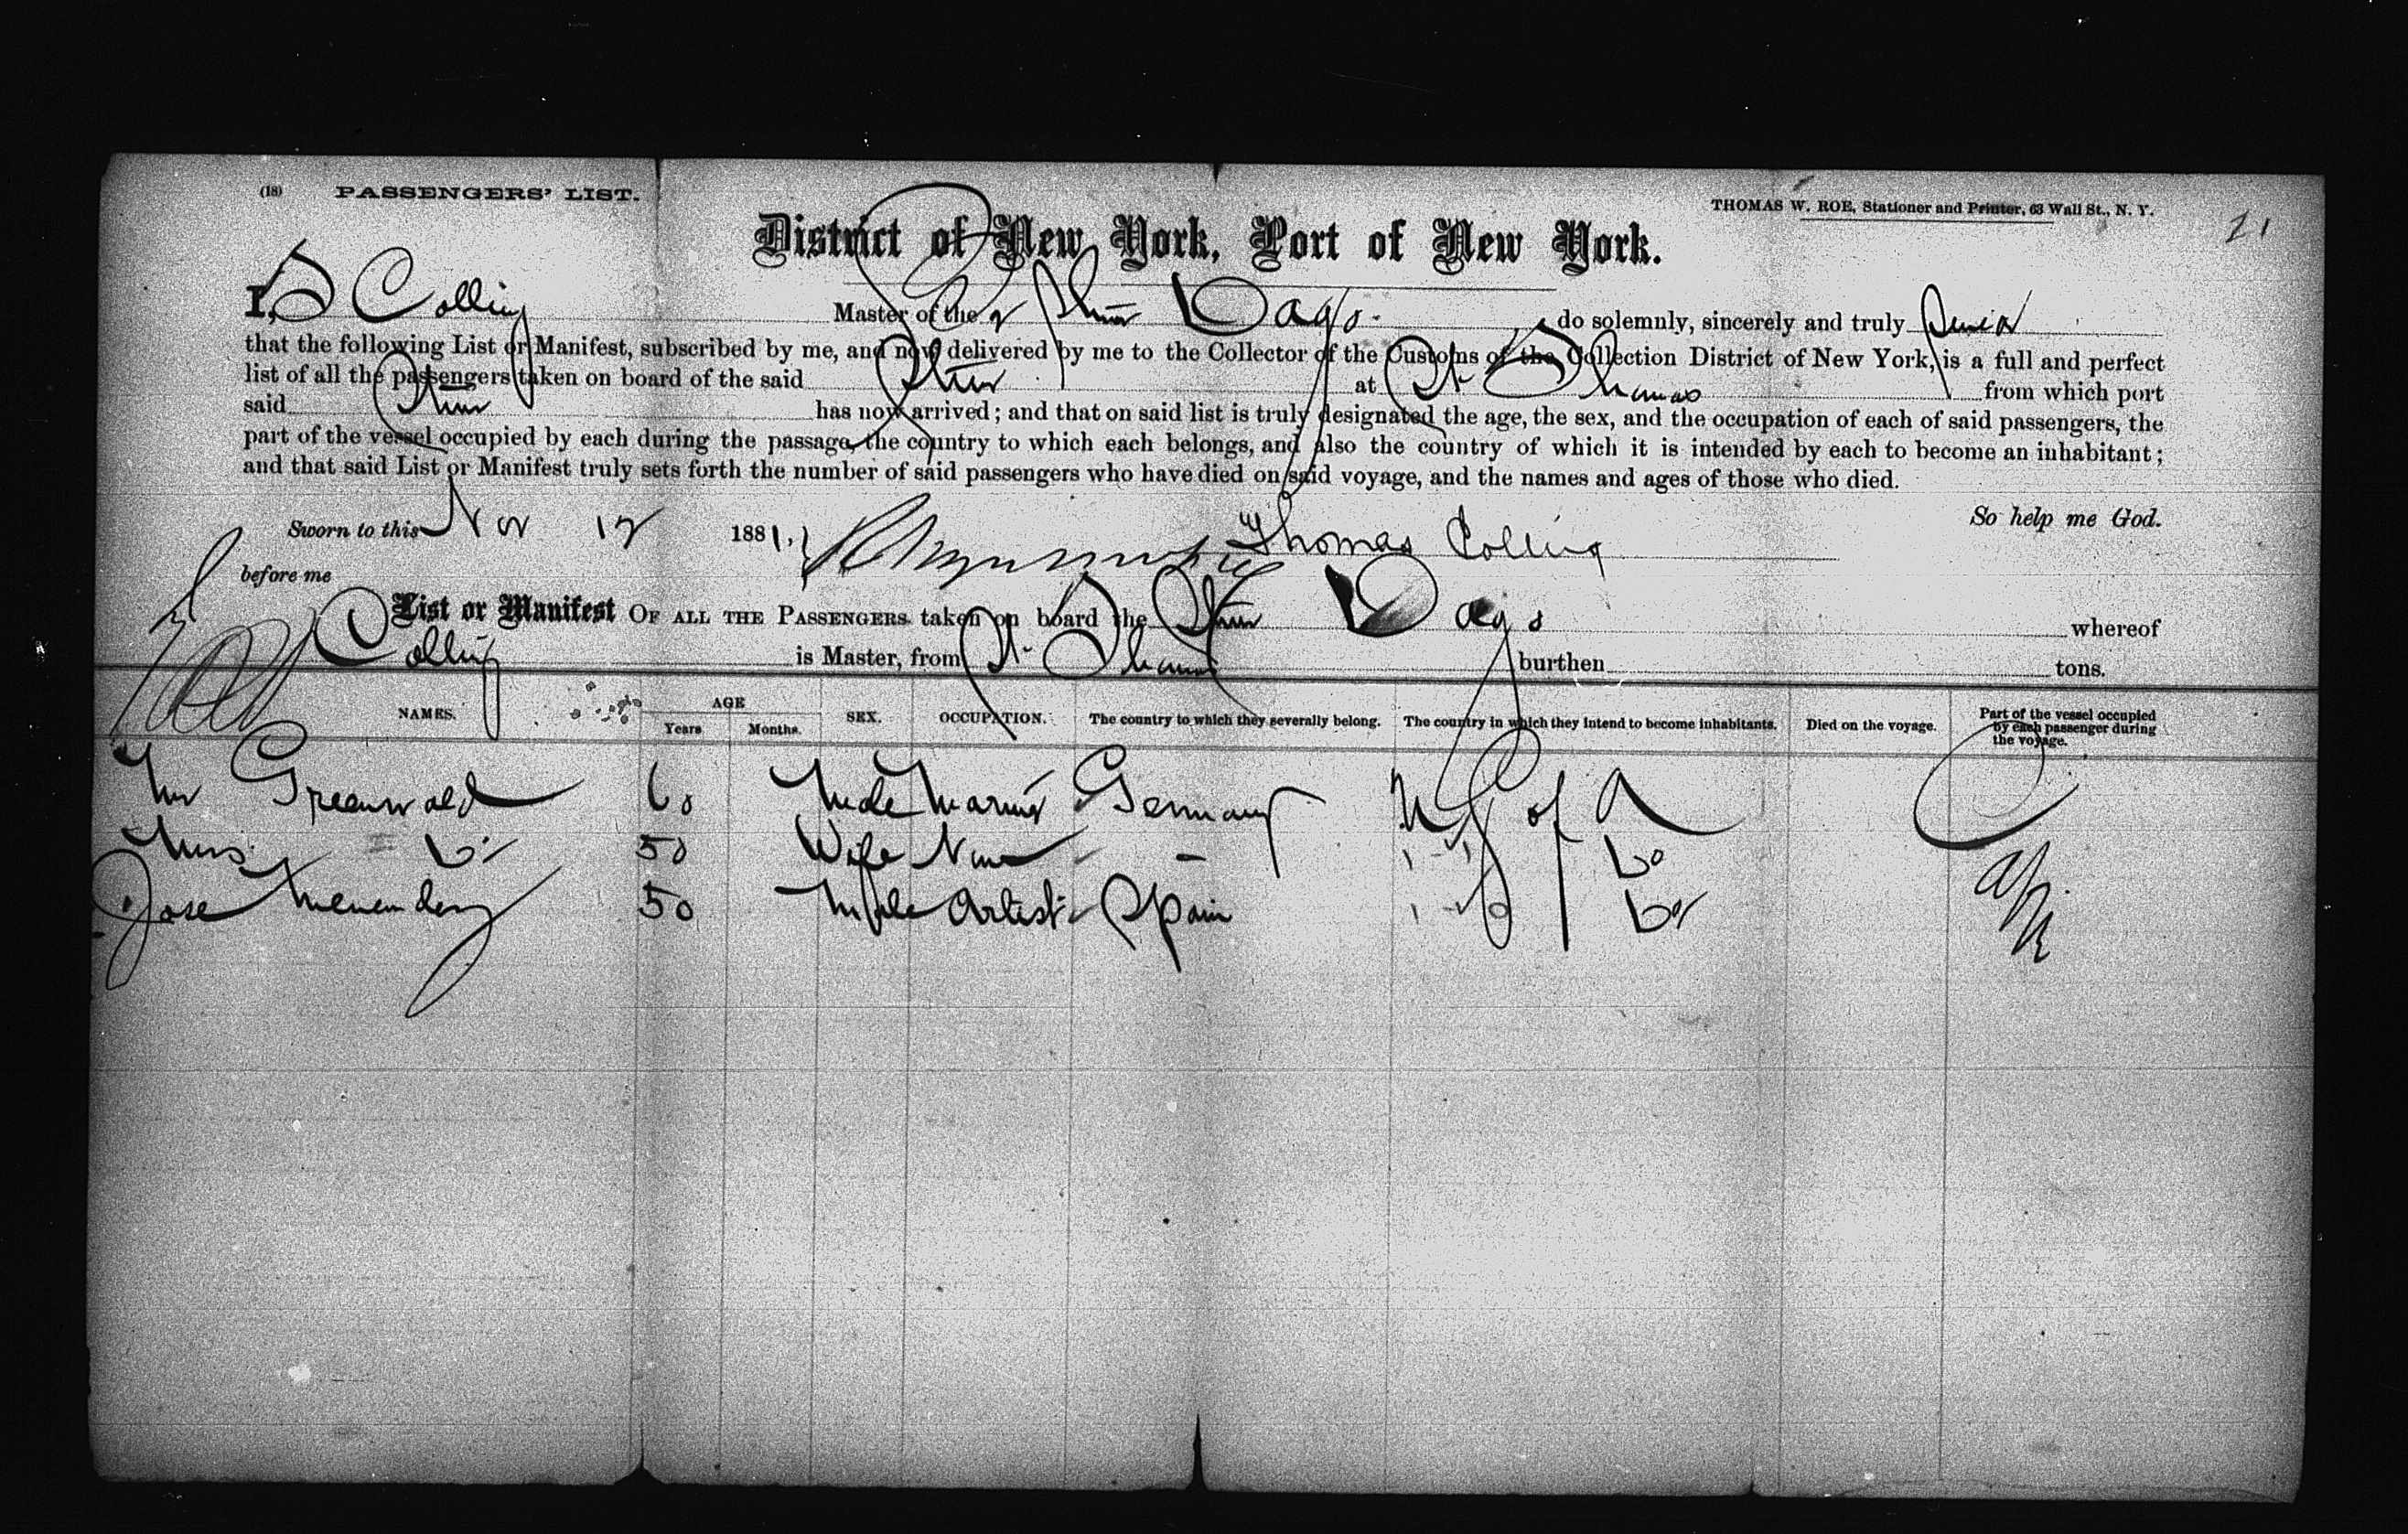 (18) PASSENGERS' LIST.
THOMAS W. ROE, Stationer and Printer, 63 Wall St., N. Y.
21
District of New York, Port of New York.
I, Colling Master of the Br Stmr do solemnly, sincerely and truly Swear
that the following List or Manifest, subscribed by me, and now delivered by me to the Collector of the Customs of the Collection District of New York, is a full and perfect
list of all the passengers taken on board of the said Stmr at St Thomas from which port
said Stmr has now arrived; and that on said list is truly designated the age, the sex, and the occupation of each of said passengers, the
part of the vessel occupied by each during the passage, the country to which each belongs, and also the country of which it is intended by each to become an inhabitant;
and that said List or Manifest truly sets forth the number of said passengers who have died on said voyage, and the names and ages of those who died.
So help me God.
Sworn to this Nov 12 1881, Thomas Colling
before me
List or Manifest OF ALL THE PASSENGERS taken on board the Stmr whereof
Colling is Master, from St Thomas burthen tons.
NAMES. AGE Years Months. SEX. OCCUPATION. The country to which they severally belong. The country in which they intend to become inhabitants. Died on the voyage. Part of the vessel occupied by each passenger during the voyage.
Mr Greenwald 60 Male Germany U S of A
Mrs Do 50 Wife None - Do
Jose Menendez 50 Male Artist Spain Do